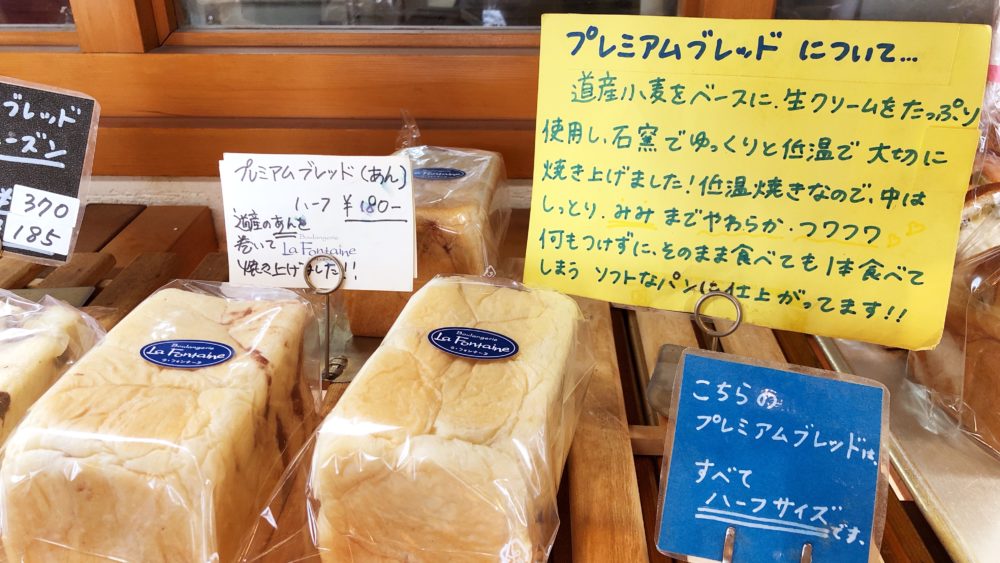 プレミアムブレッド について…
道産小麦をベースに、生クリームをたっぷり
使用し、石窯でゆっくりと低温で 大切に
焼き上げました！低温焼きなので、中は
しっとり、みみ までやわらか、フワフワ
何もつけずに、そのまま食べても1本食べて
しまう ソフトなパンに仕上がってます!!
ブレッド
ーズン
¥370
185
プレミアムブレッド(あん)
ハーフ ¥180-
道産のあんを
巻いて
焼き上げました!!
Boulangerie
La Fontaine
Boulangerie
La Fontaine
ラ・フォンテーヌ
Boulangerie
La Fontaine
ラ・フォンテーヌ
こちらの
プレミアムブレッドは、
すべて
ハーフサイズです。